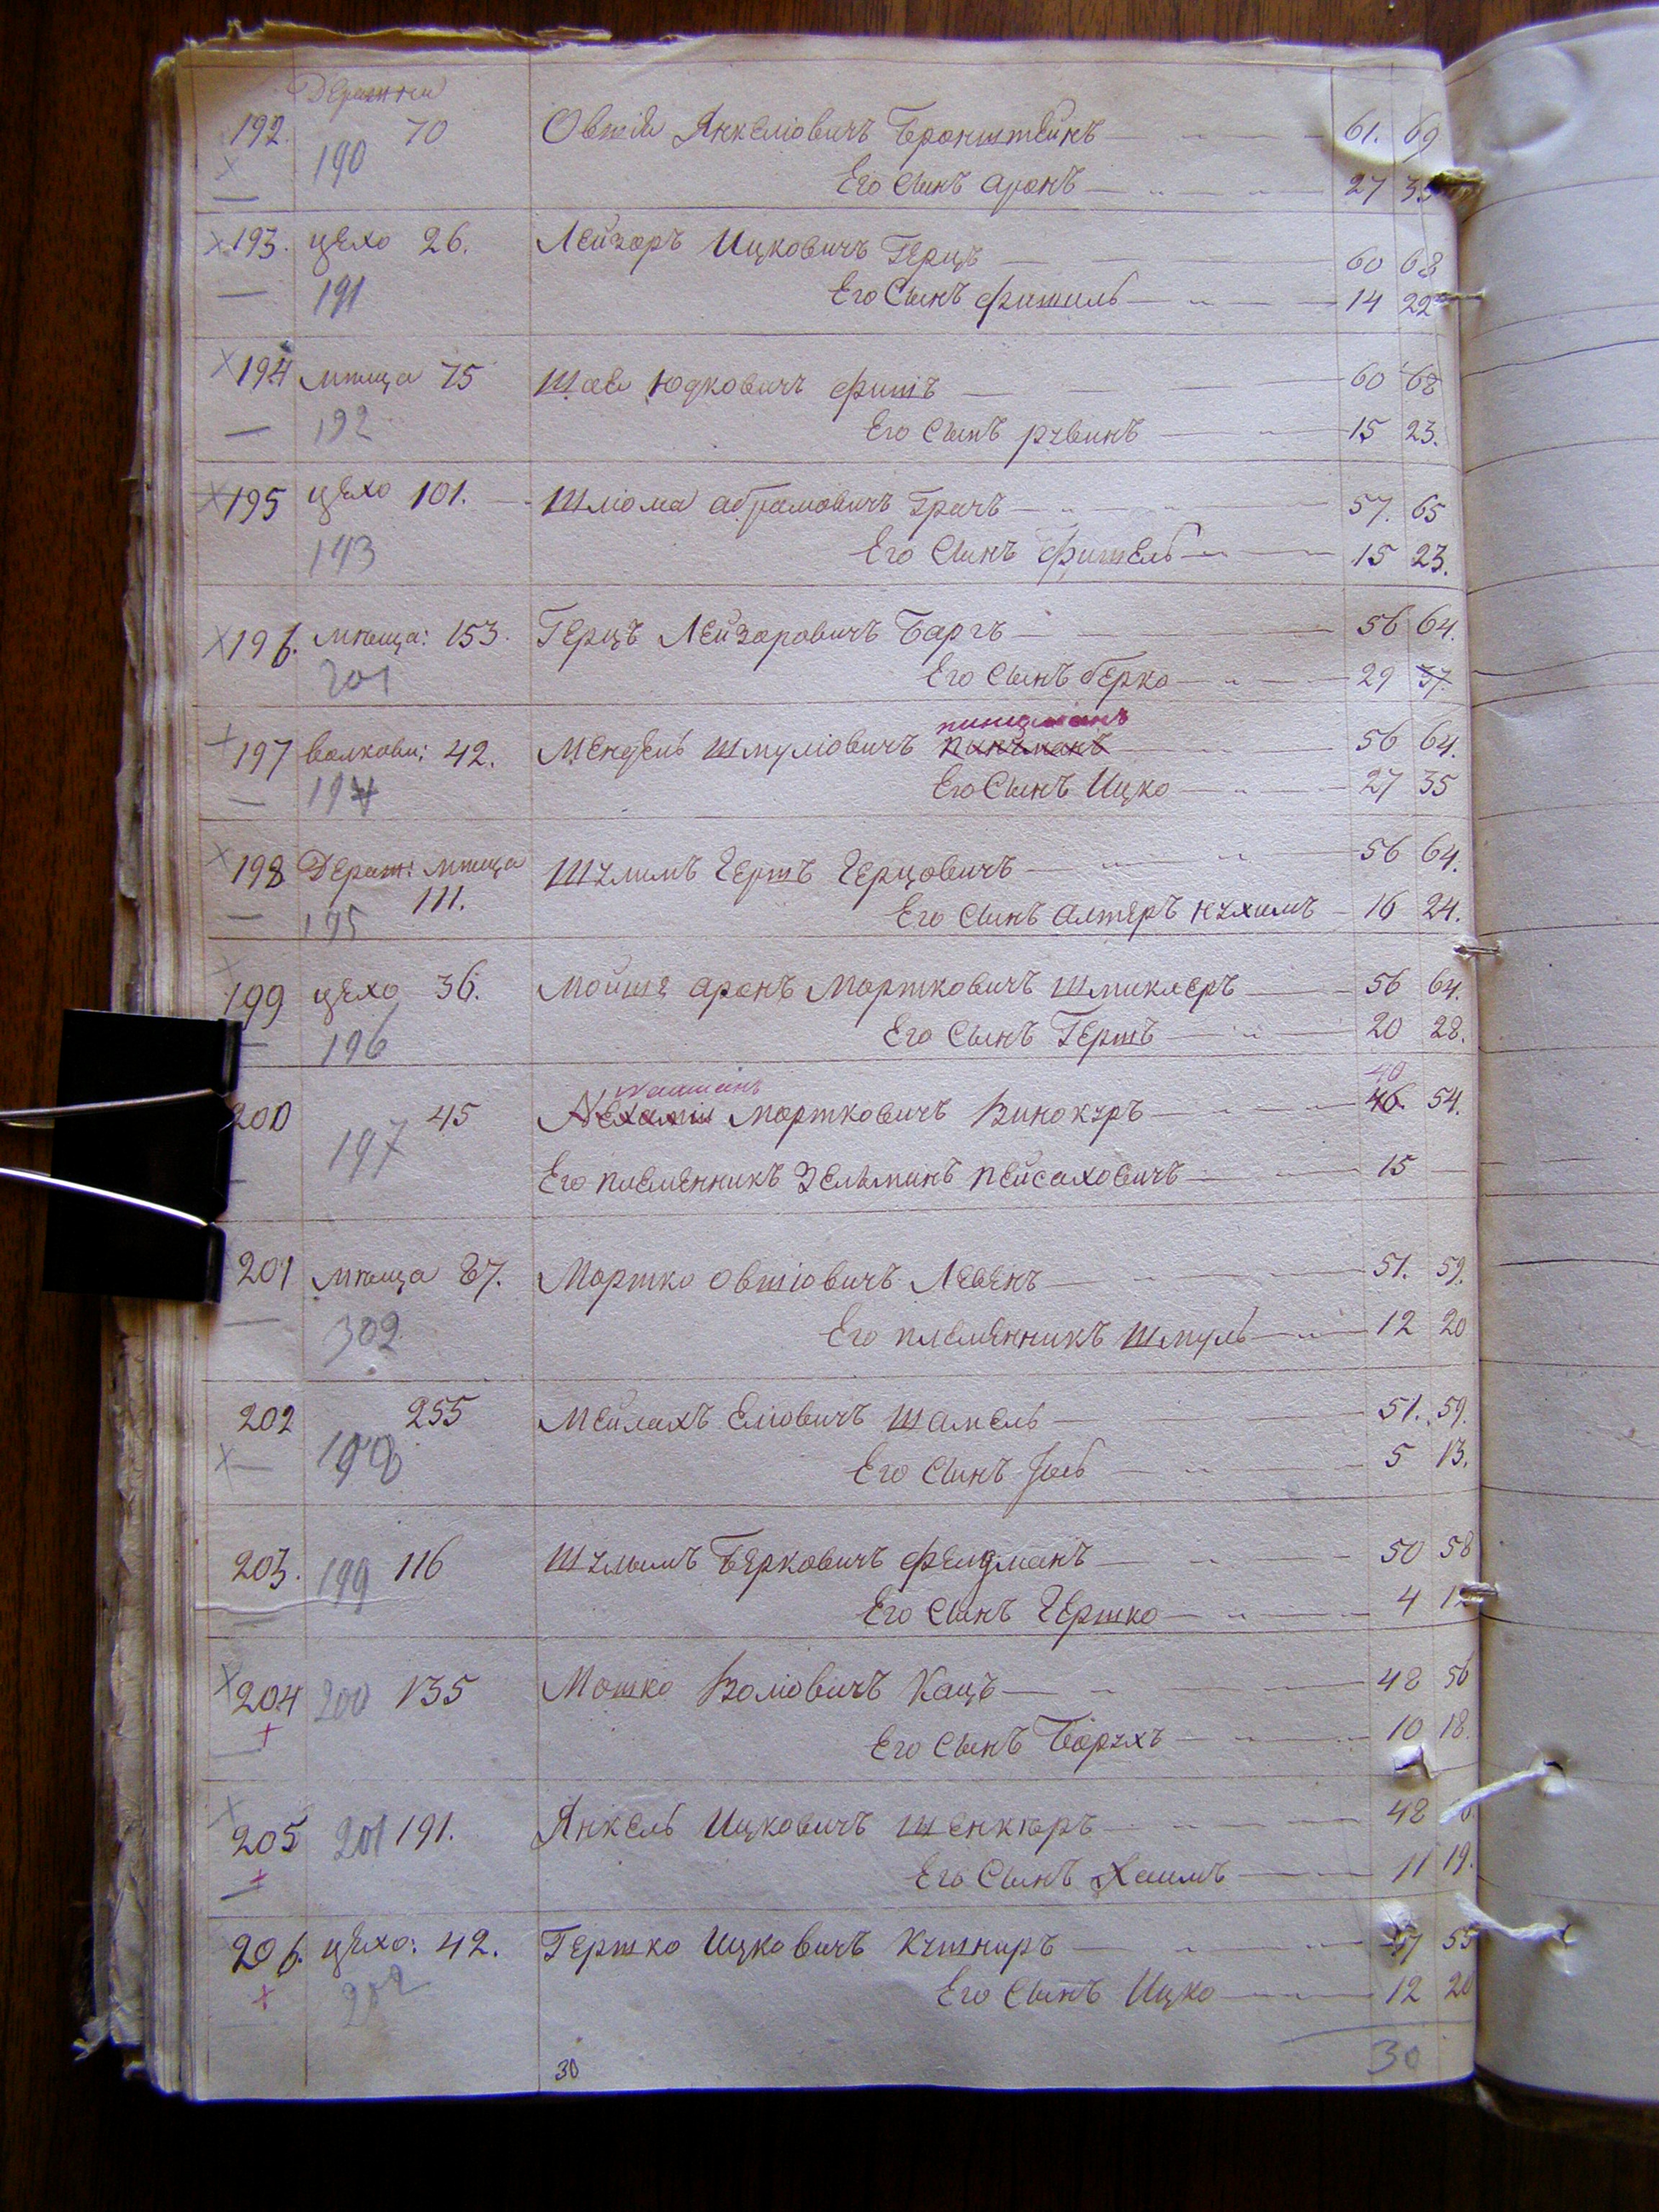 192. 70 Овшій Янкеліовичъ Бронштейнъ 61. 69
190 Его Сынъ Аронъ 27 35
193. цехо 26. Лейзоръ Ицковичъ Герцъ 60 68
191 Его Сынъ Фишиль 14 22
194 мѣща 75 Шае Юдковичъ Фишъ 60 68
192 Его Сынъ рувинъ 15 23.
195 цехо 101. Шліома абрамовичъ Грачъ 57. 65
193 Его Сынъ Фишель 15 23.
196. мѣща: 153. Герцъ Лейзоровичъ Баргъ 56 64.
201 Его Сынъ берко 29 37.
197 волкови: 42. Мендель Шмуліовичъ 56 64.
194 Его Сынъ Ицко 27 35
198 Дераж: мѣща Шулимъ Гершъ Герцовичъ 56 64.
111.
195 Его Сынъ алтеръ нухимъ 16 24.
199 цехо 36. Мойше аронъ Мортковичъ Шмиклеръ 56 64.
196 Его Сынъ Гершъ 20 28.
40
200 45 Мортковичъ Винокуръ 46. 54.
197
Его племенникъ Зельманъ Пейсаховичъ 15
201 мѣща 87. Мортко Овшіовичъ Левенъ 51. 59.
302 Его племенникъ Шмуль 12 20
202 255 Мейлахъ Еліовичъ Шамель 51. 59.
198 Его Сынъ 5 13.
203. 199 116 Шулымъ Берковичъ Фелдманъ 50 58
Его Сынъ Гершко 4 12
204 200 135 Мошко Воліовичъ Кацъ 48 56
Его Сынъ Борухъ 10 18.
205 201 191. Янкель Ицковичъ Шенкаръ 48
Его Сынъ Хаимъ 11 19.
206. цехо: 42. Гершко Ицковичъ Кушниръ 47 55
202 Его Сынъ Ицко 12 20
30
30